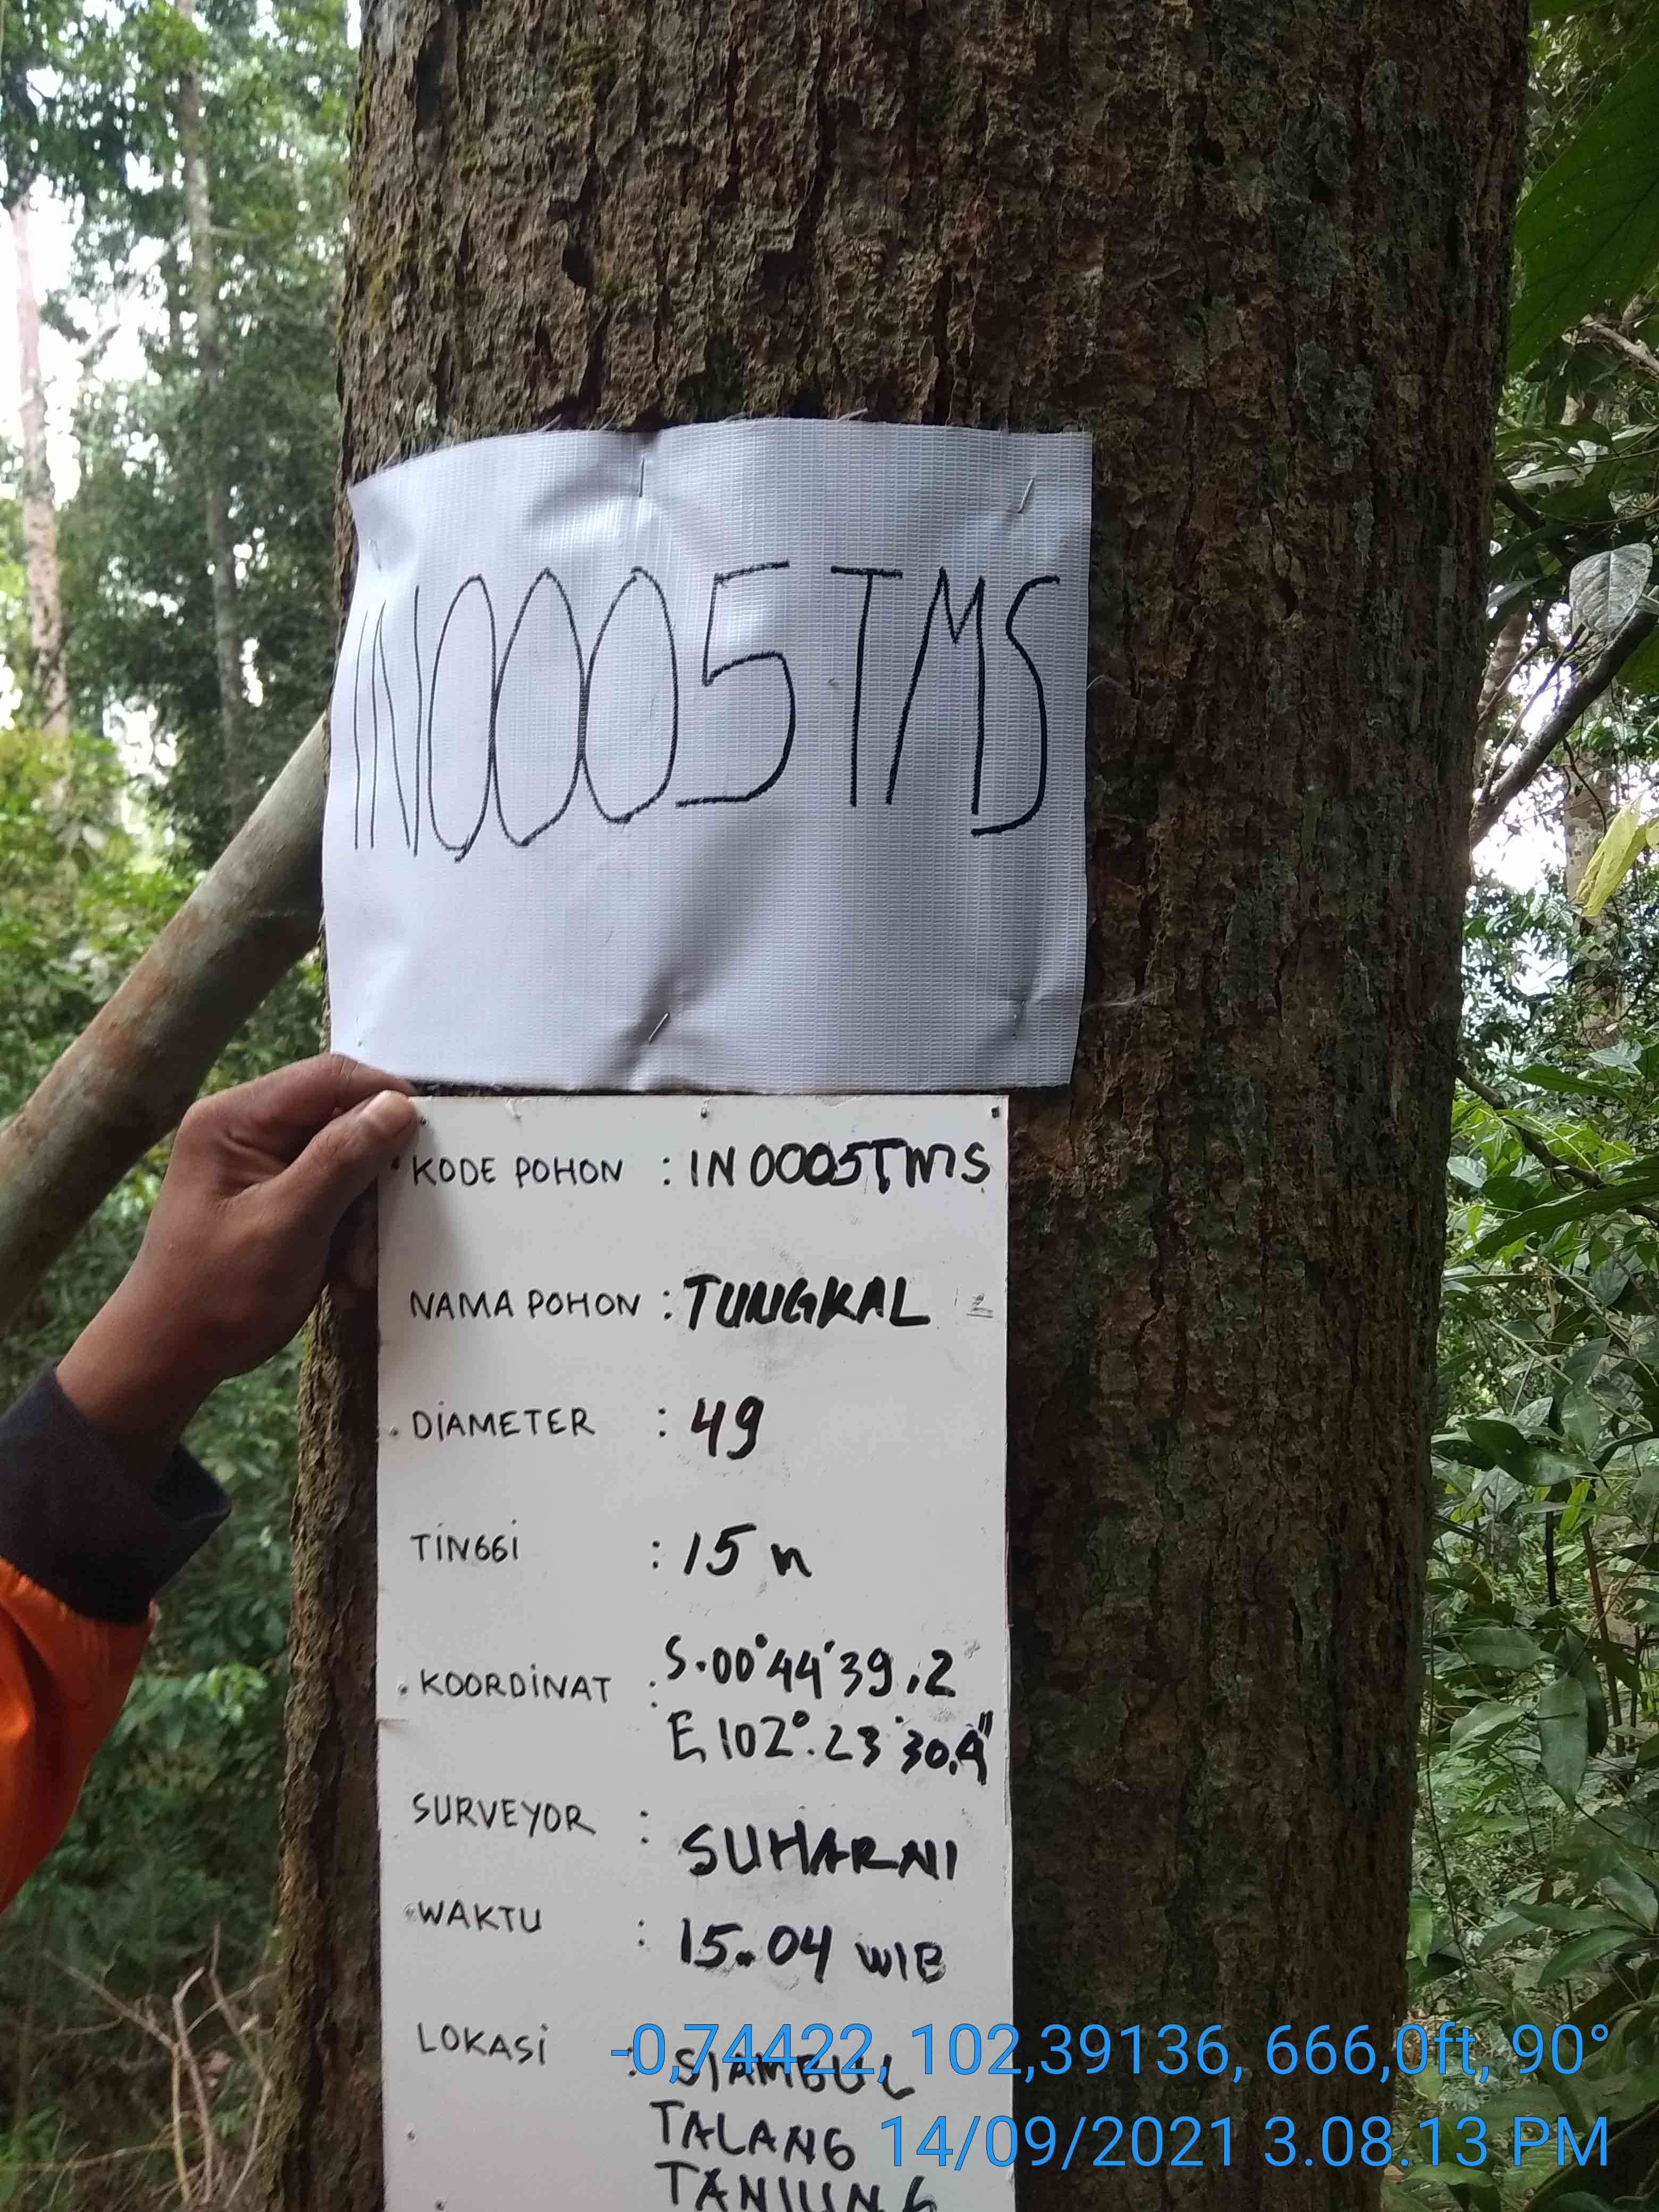 IN0005TMS
KODE POHON : IN0005TMS
NAMA POHON : TUNGKAL
DIAMETER : 49
TINGGI : 15 m
KOORDINAT : S.00°44'39,2
E,102°.23'30.4"
SURVEYOR : SUHARNI
WAKTU : 15.04 WIB
LOKASI : SIAMBUL
TALANG
TANJUNG
-0,74422, 102,39136, 666,0ft, 90°
14/09/2021 3.08.13 PM